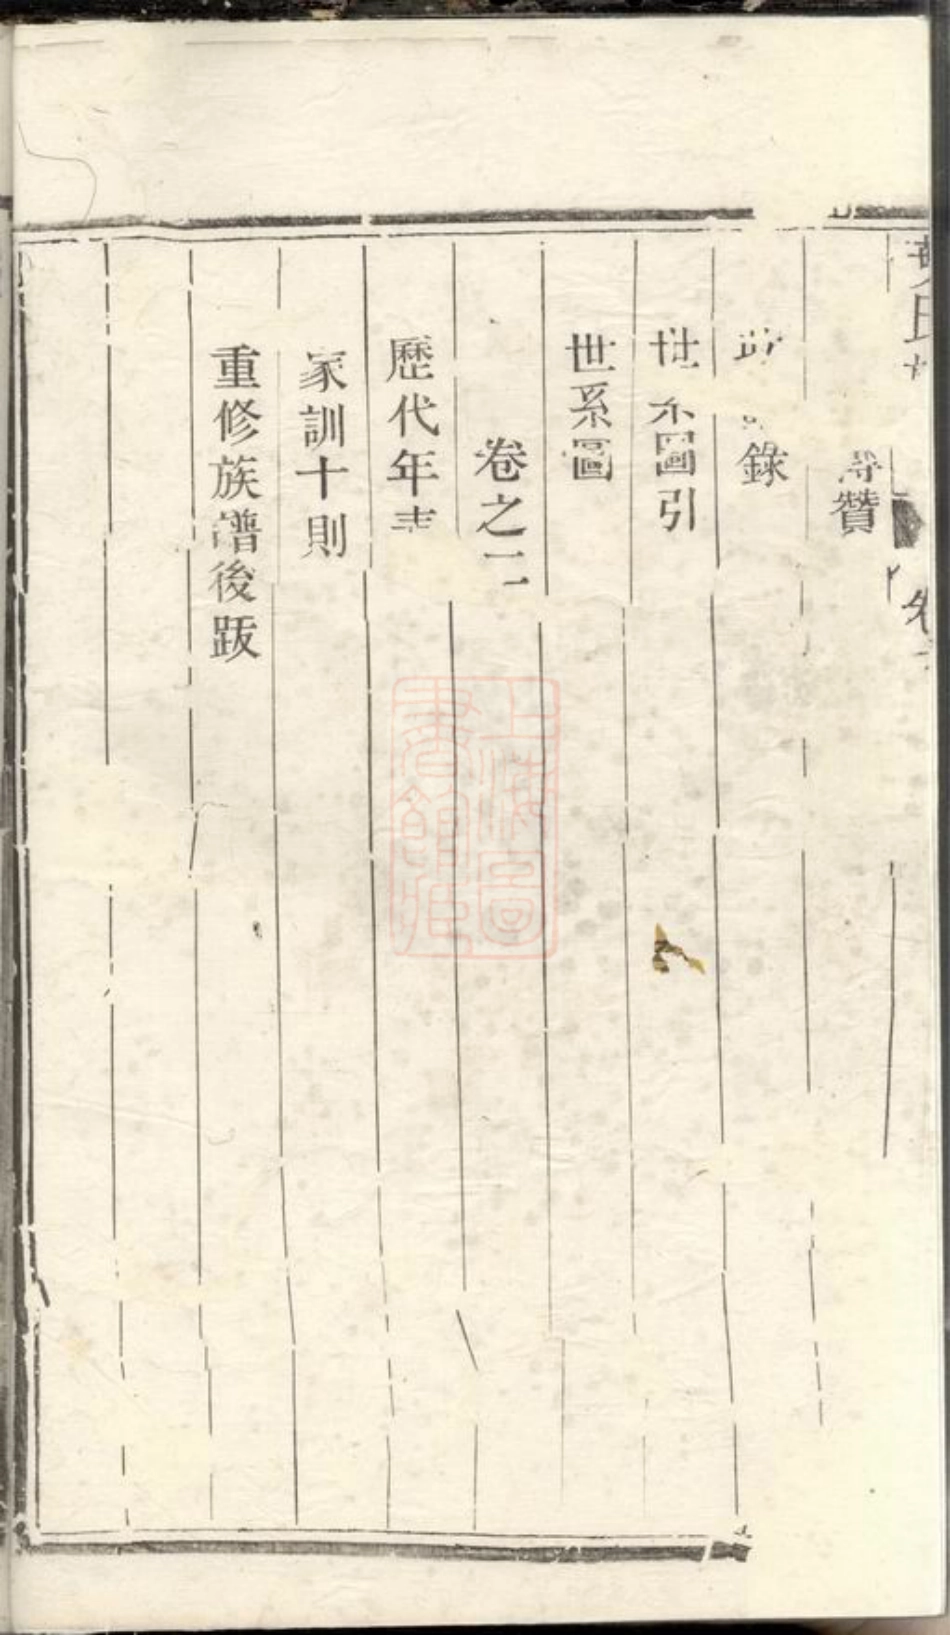 氏
卷
贊
錄
世系圖引
世系圖
卷之二
歷代年表
家訓十則
重修族譜後跋
上海圖書館藏